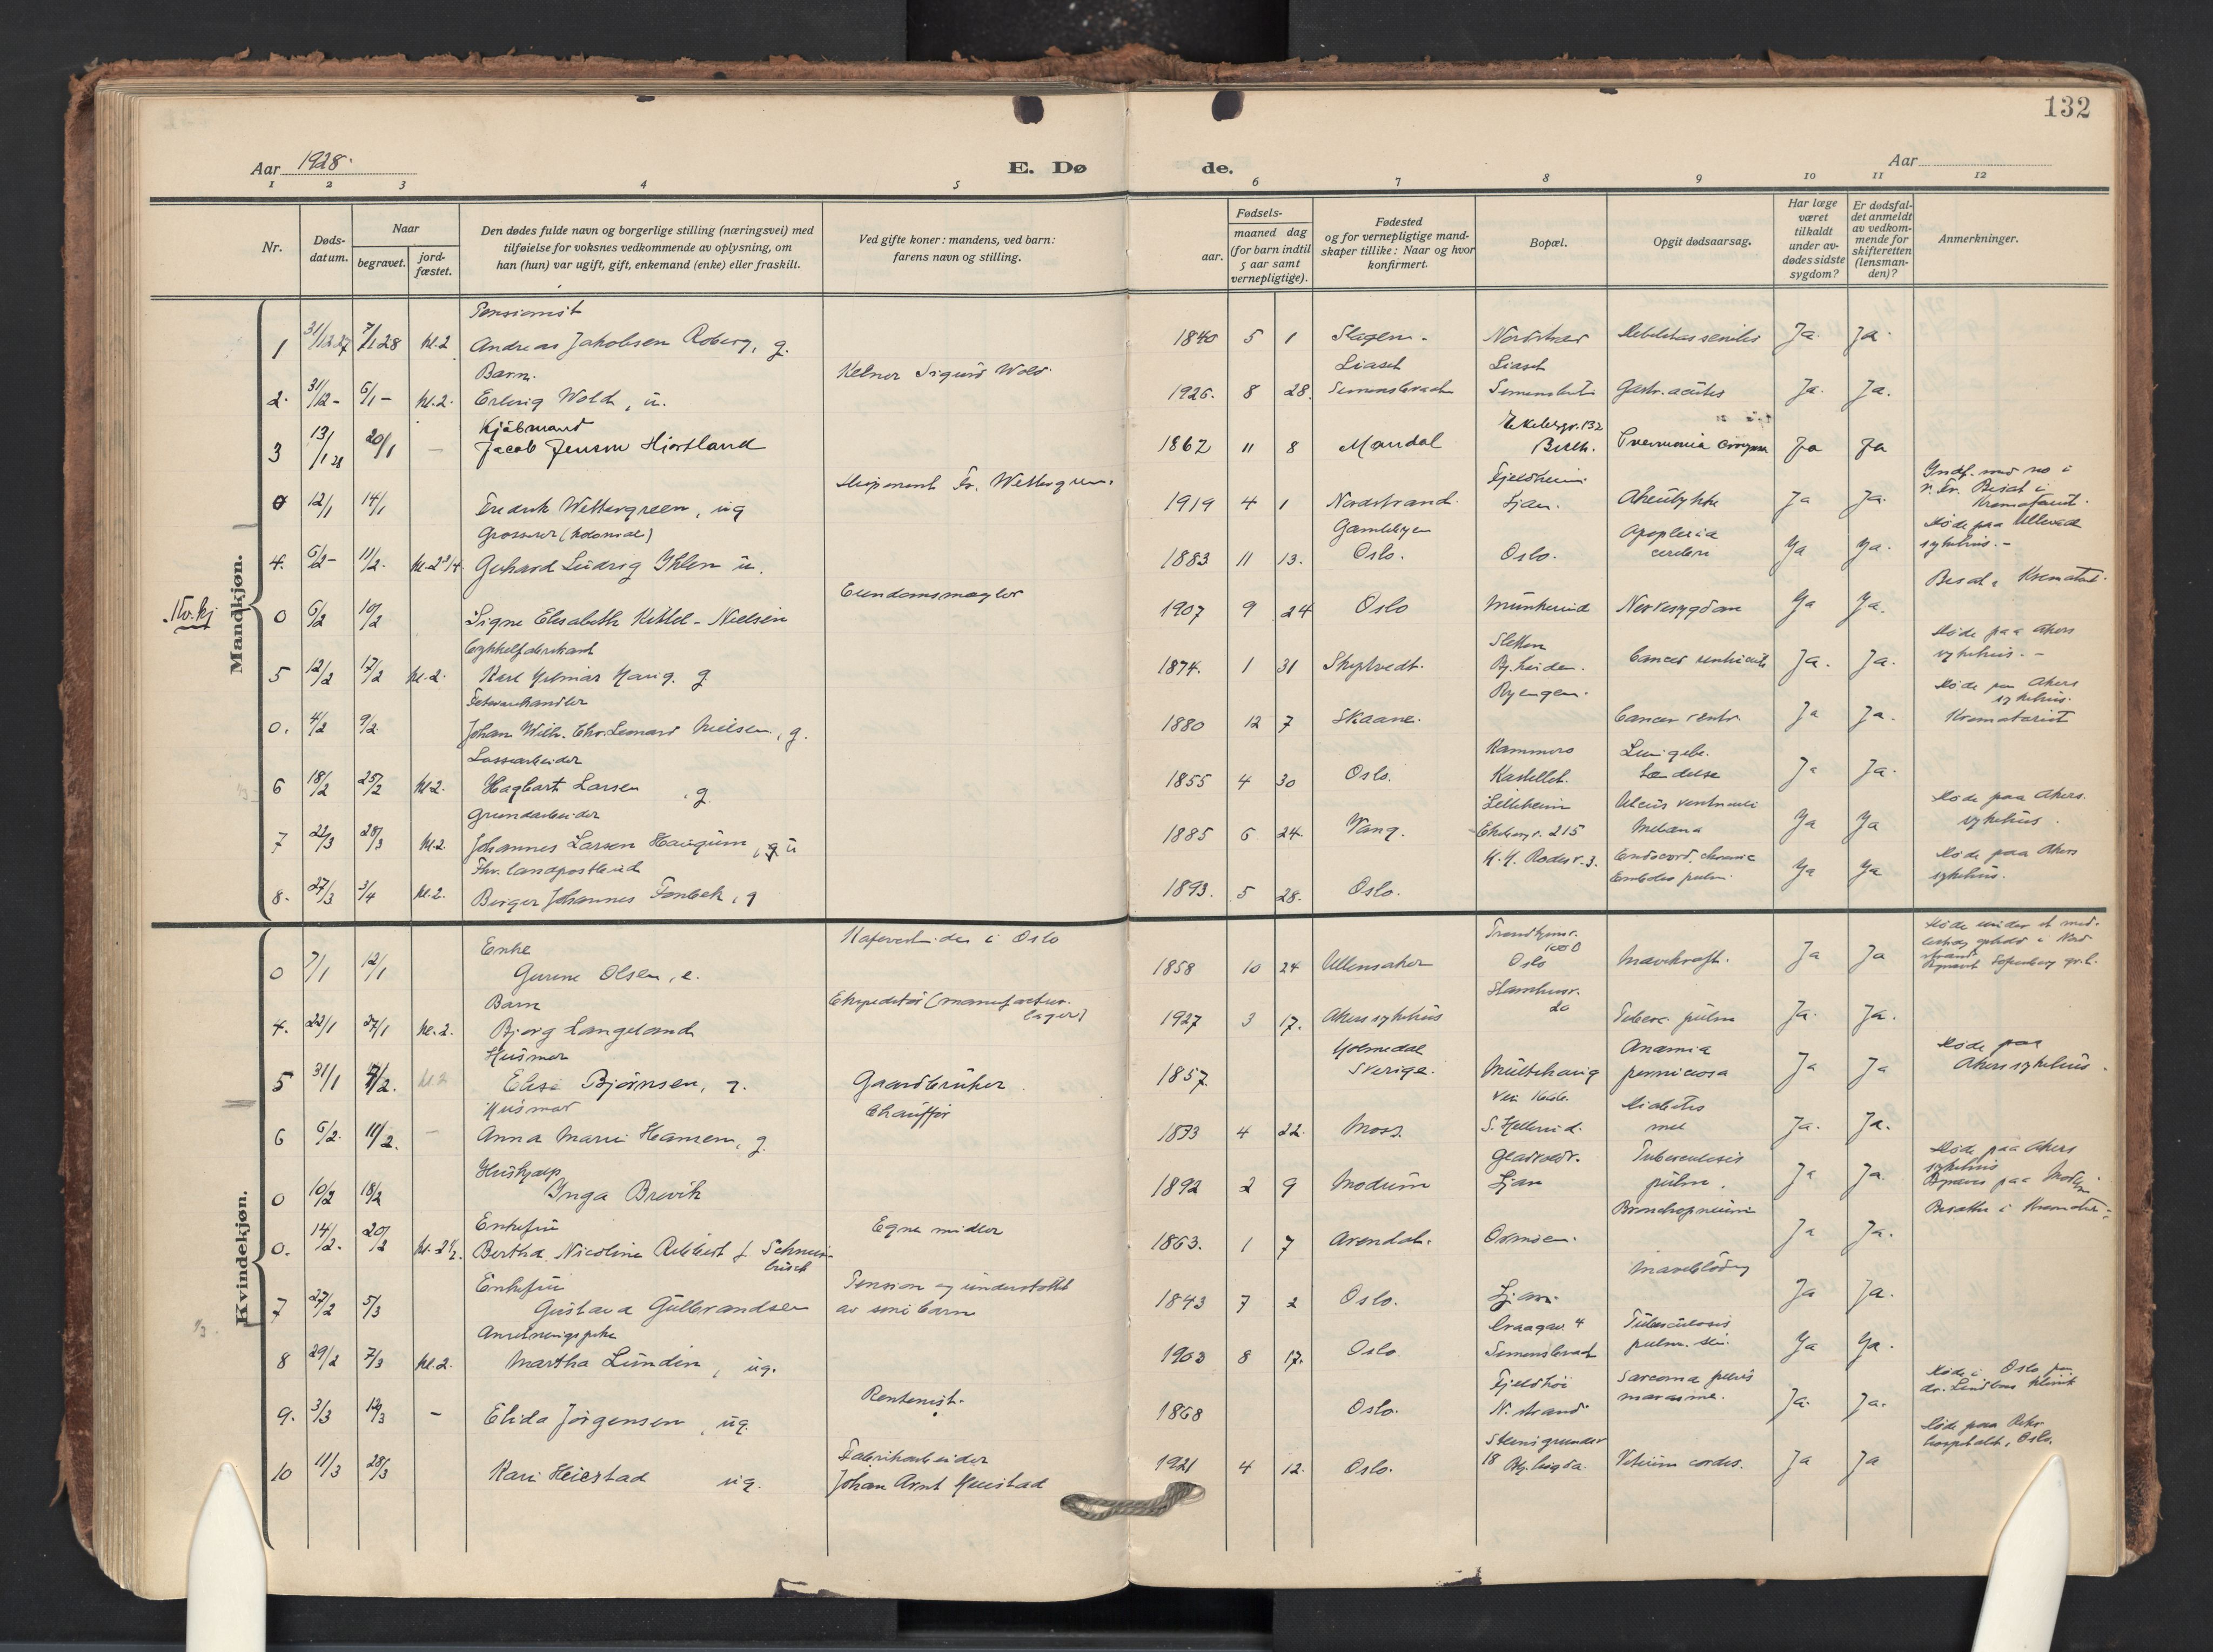 132
Aar 1928.
E. Dø
de.
Aar
1 2 3 4 5 6 7 8 9 10 11 12
Nr.
Døds-
datum.
Naar
begravet.
jord-
fæstet.
Den dødes fulde navn og borgerlige stilling (næringsvei) med
tilføielse for voksnes vedkommende av oplysning, om
han (hun) var ugift, gift, enkemand (enke) eller fraskilt.
Ved gifte koner: mandens, ved barn:
farens navn og stilling.
Fødsels-
aar.
maaned dag
(for barn indtil
5 aar samt
vernepligtige).
Fødested
og for vernepligtige mand-
skaper tillike: Naar og hvor
konfirmert.
Bopæl.
Opgit dødsaarsag.
Har læge
været
tilkaldt
under av-
dødes sidste
sygdom?
Er dødsfal-
det anmeldt
av vedkom-
mende for
skifteretten
(lensman-
den)?
Anmerkninger.
Mandkjøn.
Pensionist
1 31/12 27 7/1 28 kl. 2 Andreas Jakobsen Roberg, g. 1840 5 1 Slagen. Nordstrand Debilitas senilis Ja. Ja.
Barn. Kelner Sigurd Wold. Liaset Liaset
2. 31/12 - 6/1 - kl. 2. Erling Wold, u. 1926. 8 28. Simensbraat Simensbraat Gastr. acutis Ja. Ja.
Kjøbmand Ekebergv. 132
3 13/1 28 20/1 - Jacob Jensen Hjortland 1862 11 8 Mandal Bekk. Pneumonia Ja Ja
Disponent Fr. Wettergreen. Fjeldheim
0 12/1 14/1 Fredrik Wettergreen, ug 1919 4 1 Nordstrand. Ljan. Ja Ja. Krematoriet.
Grosserer (kolonial) Gamlebyen Apoplexia Døde paa Ullevaal
4. 6/2 - 11/2. kl. 2 3/4 Gerhard Ludvig Ihlen u. 1883 11 13. Oslo. Oslo. cerebri Ja Ja. sykehus. -
Kv. kj Eiendomsmægler
0 6/2 10/2 Signe Elisabeth Kittel-Nielsen 1907 9 24 Oslo Munkerud Nervesygdom Ja Ja.
Cykkelfabrikant Sletten Døde paa Akers
5 12/2 17/2 kl. 2. Karl Hilmar Haug. g 1874. 1 31 Skiptvedt. Bj. heiden. Cancer ventriculi Ja. Ja. sykehus. -
Fetevarehandler Ryengen. Døde paa Akers sykehus.
0. 4/2 9/2. Johan Wilh. Chr. Leonard Nielsen, g. 1880 12 7 Skaane. Cancer ventr. Ja Ja. Krematoriet
Lossearbeider Kammers Lungebe.
6 18/2 25/2 kl 2. Hagbart Larsen, g 1855 4 30 Oslo. Kastellet. tændelse Ja Ja.
Grundarbeider Lilleheim Ulcus ventriculi Døde paa Akers.
7 22/3 28/3 kl. 2. Johannes Larsen Haugum, u 1885 6 24. Vang. Ekebergv. 215 Melæna Ja Ja sykehus.
Fhv. landpostbud H. H. Rodes v. 3. Endocard. chronic Døde paa Akers
8. 27/3 3/4 kl. 2. Birger Johannes Fonbek, g 1893. 5 28. Oslo. Emboli pulm. Ja Ja sykehus.
Kvindekjøn.
Enke i Oslo Trondhjemsv. 100 B
0 7/1 12/1 Gurine Olsen, e. 1858 10 24 Ullensaker Oslo Mavekræft. Ja Ja
Barn Ekspeditør (manufactur. lager)
4. 22/1 27/1 kl. 2. Bjørg Langeland 1927 3 17. Akers sykehus 20 Tuberc. pulm Ja. Ja.
Husmor Holmedal Anæmia Døde paa
5 31/1 7/2. kl 2 Elise Bjørnsen, g. Gaardbruker 1857. Sverige. Multehaug perniciosa Ja Ja Akers sykehus.
Husmor Chauffør Diabetes
6 6/2. 11/2. - Anna Marie Hansen, g. 1873 4 22. Moss. S. Hellerud. mel Ja. Ja.
Hushjælp Gladvoldv. Tuberculosis Døde paa Akers
0 10/2 18/2 Inga Brevik 1892 2 9 Modum Ljan pulm. Ja Ja. sykehus Begraves paa Modum
Enkefru Egne midler Bronchopneumi
0. 14/2. 20/2 kl. 2 1/2. Bertha Nicoline Rebbert f. 1863. 1 7 Arendal. Ormøen. Ja Ja.
Enkefru Pension og understøttet Maveblødng
7 27/2 5/3 Gustava Gulbrandsen av sine barn 1843 7 2 Oslo. Ljan. Ja Ja.
Anretningspike Craagav. 4 Tuberculosis
8 29/2 7/3 kl. 2. Martha Lundin, ug. 1903 8 17. Oslo. Simensbraat pulm. Ja Ja.
Rentenist. Fjeldhøi Sarcoma pelvis Døde i Oslo paa
9. 3/3 12/3 - Elida Jørgensen, ug. 1868 Oslo. N. strand marasme. Ja. Ja. dr. klinik
Fabrikarbeider Døde paa Riks-
10 11/3 28/3 Kari Heiestad ug. Johan Arnt Heiestad 1921 4 12. Oslo. 18 Vitium cordis. Ja Ja hospitalet, Oslo.